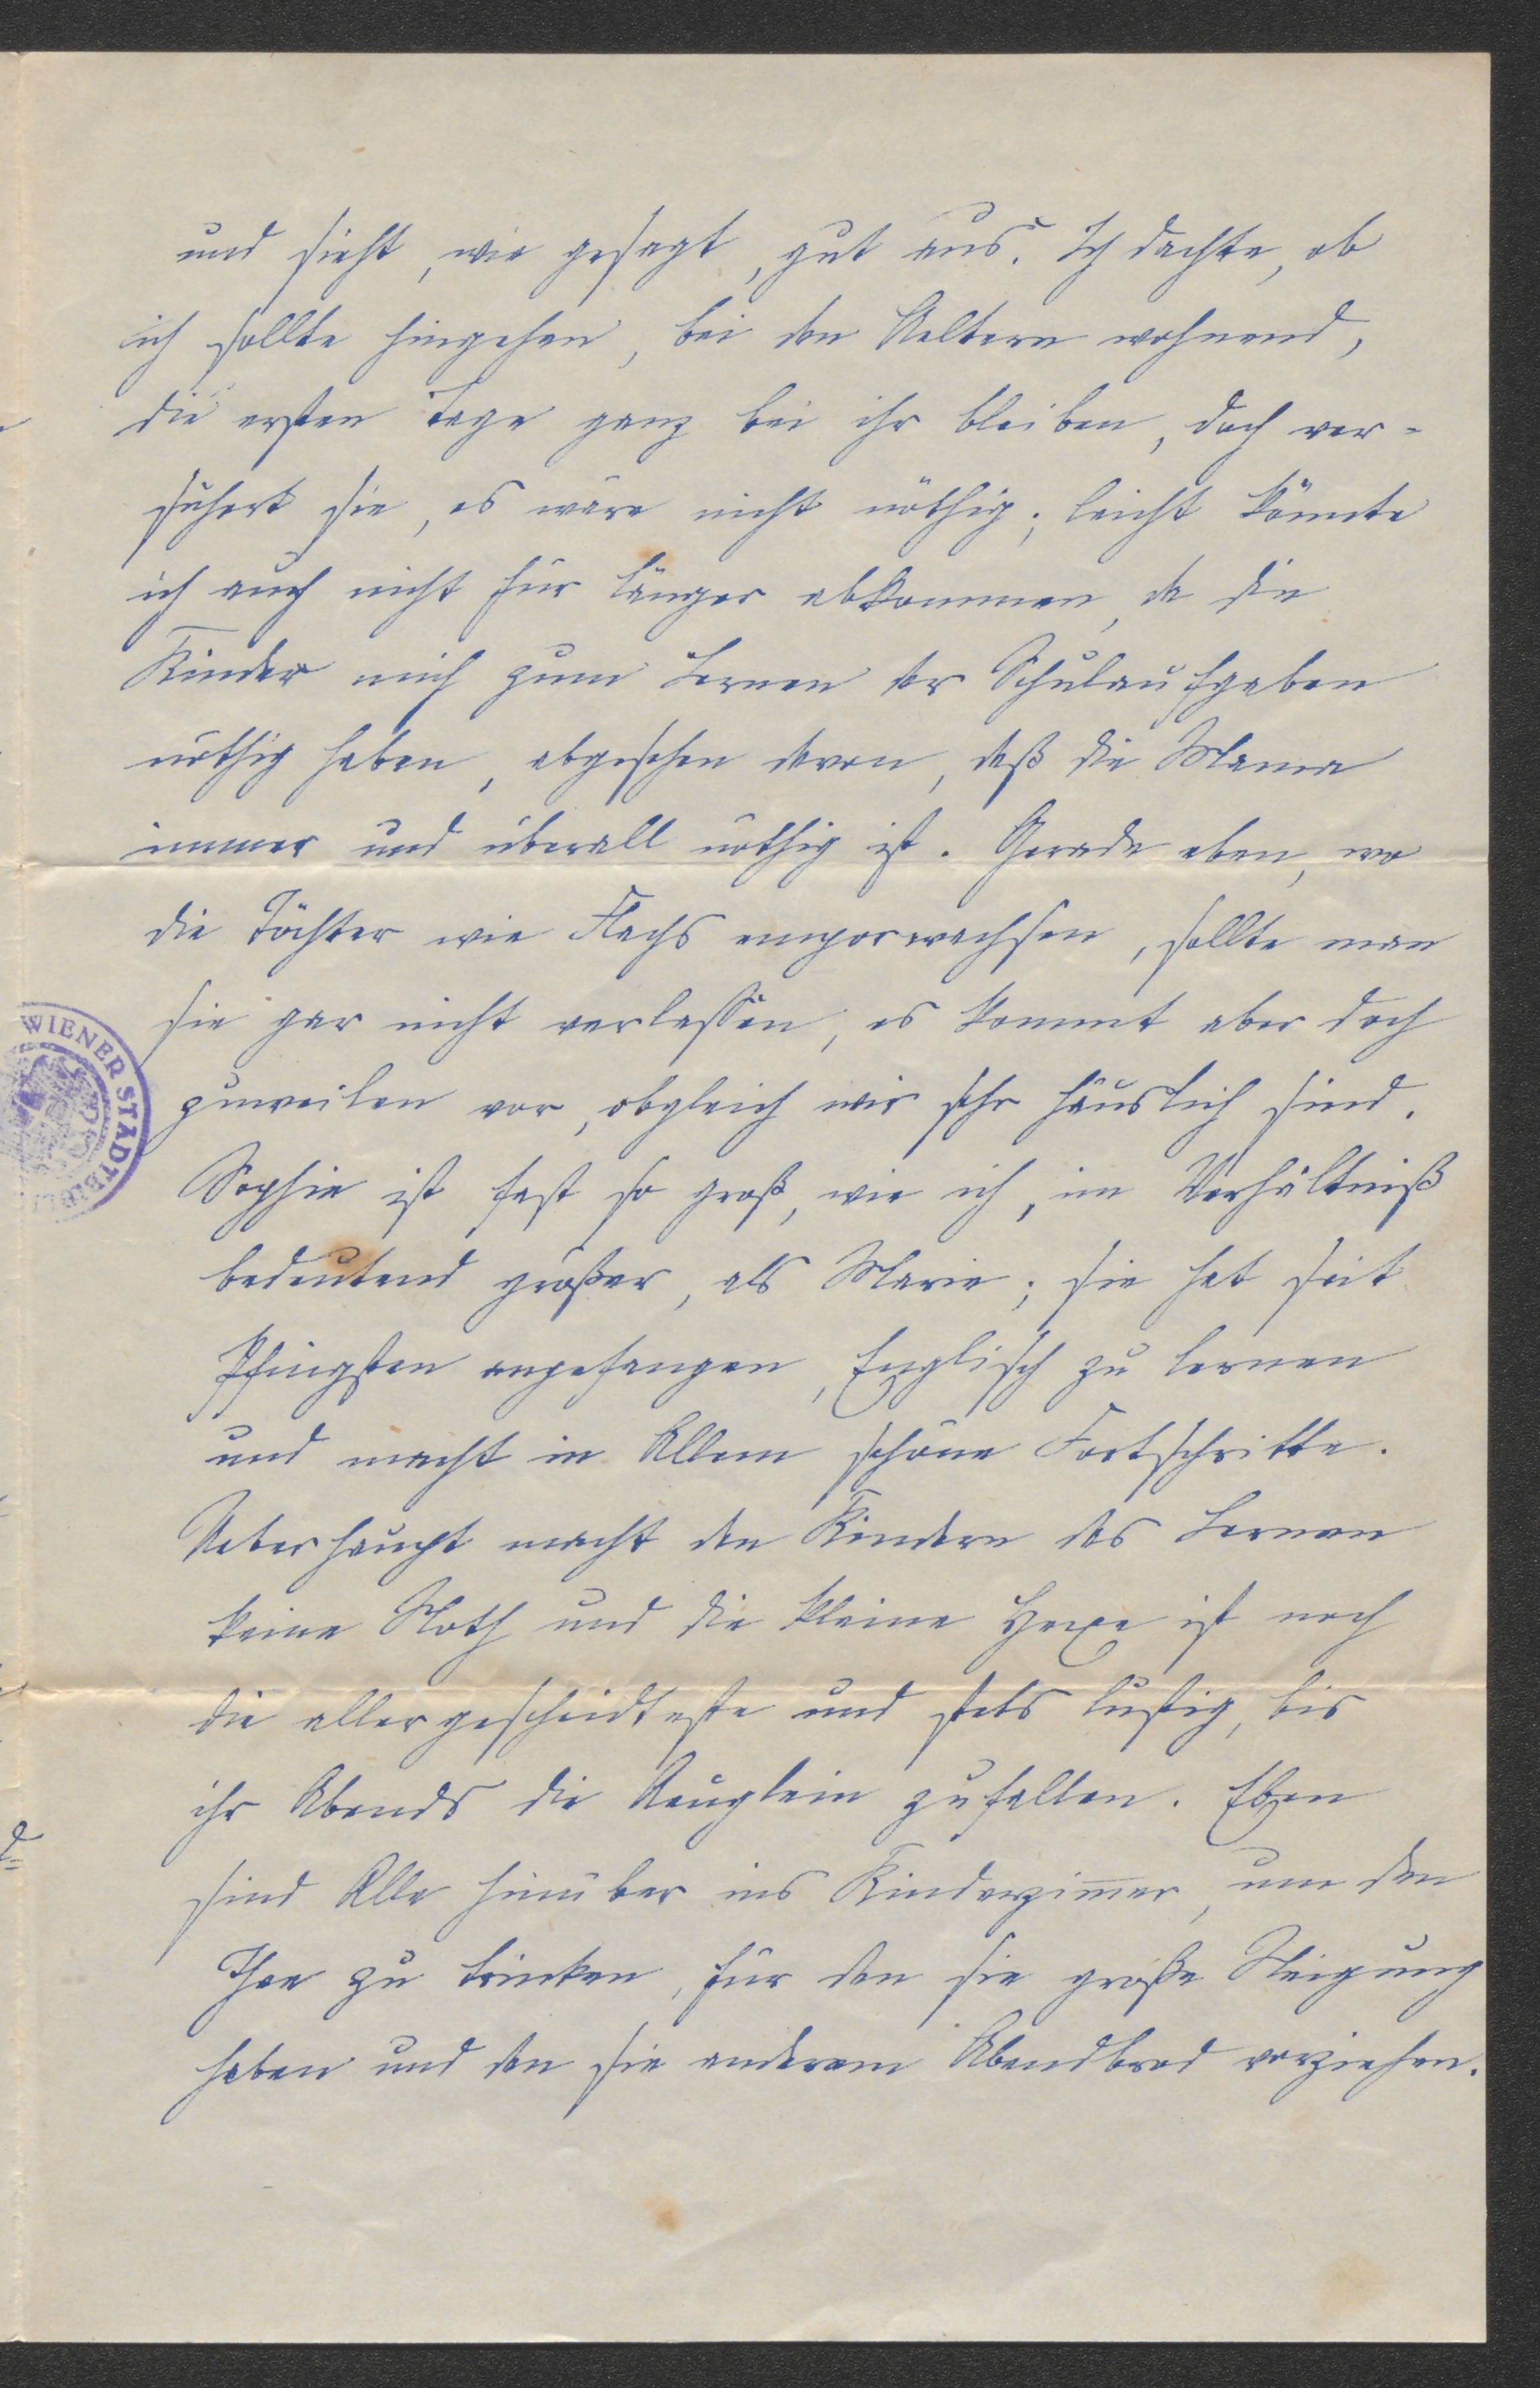 und sieht, wie gesagt, gut aus. Ich dachte, ob
ich sollte hingehen, bei den Aeltern wohnend,
die ersten Tage ganz bei ihr bleiben, doch ver-
sichert sie, es wäre nicht nöthig; leicht könnte
ich auch nicht für länger abkommen, da die
Kinder mich zum Lernen der Schulaufgaben
nöthig haben, abgesehen davon, daß die Mama
immer und überall nöthig ist. Gerade eben, wo
die Töchter wie Flachs emporwachsen, sollte man
sie gar nicht verlassen, es kommt aber doch
zuweilen vor, obgleich wir sehr häuslich sind.
WIENER STADTBIBL
Sophie ist fast so groß, wie ich, im Verhältniß
bedeutend größer, als Marie; sie hat seit
Pfingsten angefangen, Englisch zu lernen
und macht in Allem schöne Fortschritte.
Ueberhaupt macht den Kindern das Lernen
keine Noth und die kleine Hexe ist noch
die allergescheidteste und stets lustig, bis
ihr Abends die Aeuglein zufallen. Eben
sind Alle hinüber ins Kinderzimmer, um den
Thee zu trinken, für den sie große Neigung
haben und den sie anderem Abendbrod vorziehen.